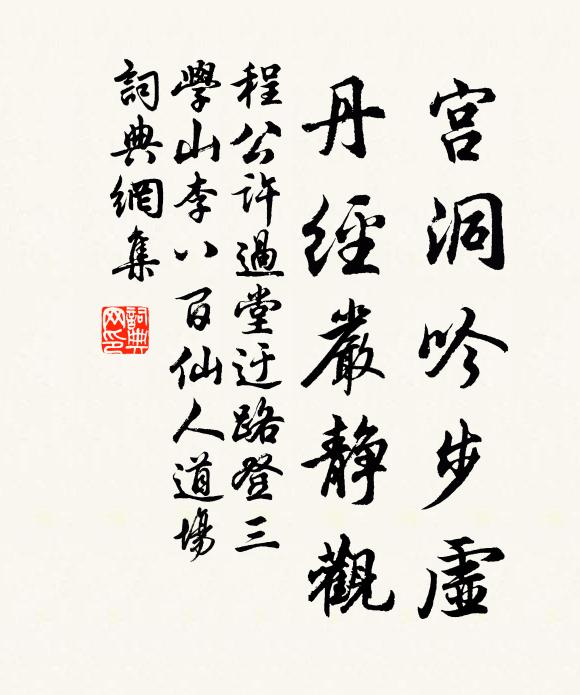 宫洞吟步虛
丹經嚴静觀
程公許過堂迂路登三
學山李八百仙人道場
詞典網集
詞典网印